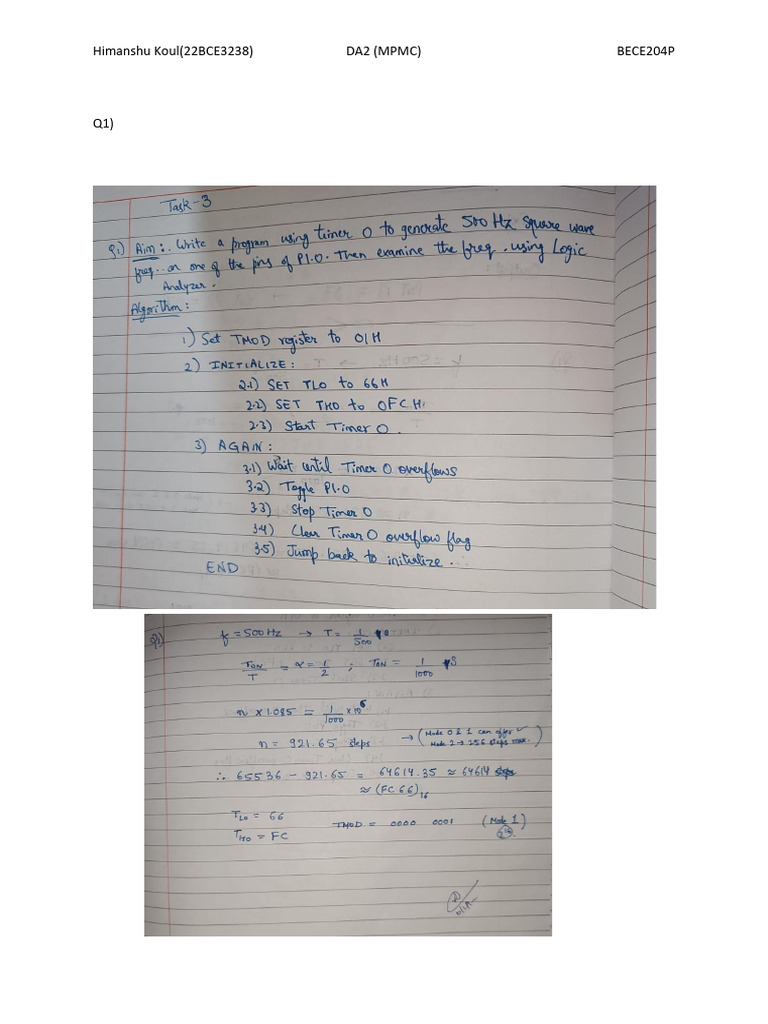 Himanshu Koul(22BCE3238) DA2 (MPMC) BECE204P
Q1)
Task-3
Q1) Aim:. Write a program using timer 0 to generate 500 Hz square wave
freq.. on one of the pins of P1.0. Then examine the freq. using Logic
Analyzer.
Algorithm:
1) Set TMOD register to 01H
2) INITIALIZE:
2.1) SET TL0 to 66H
2.2) SET TH0 to 0FCH
2.3) Start Timer 0.
3) AGAIN:
3.1) Wait until Timer 0 overflows
3.2) Toggle P1.0
3.3) Stop Timer 0
3.4) Clear Timer 0 overflow flag
3.5) Jump back to initialize.
END
Q1) f = 500Hz → T = 1/500 s
TON/T = α = 1/2 ; TON = 1/1000 s
n × 1.085 = 1/1000 × 10⁶
n = 921.65 steps → (Mode 0 & 1 can offer
Mode 2 → 256 steps max.)
∴ 65536 - 921.65 = 64614.35 ≈ 64614
≈ (FC66)₁₆
TL0 = 66
TH0 = FC TMOD = 0000 0001 (Mode 1)